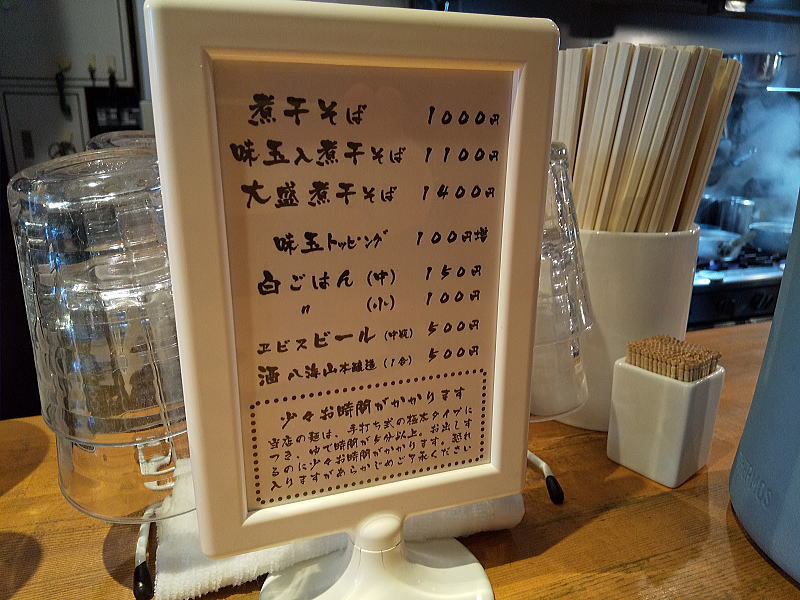 煮干そば 1000円
味玉入煮干そば 1100円
大盛煮干そば 1400円
味玉トッピング 100円増
白ごはん(中) 150円
〃 (小) 100円
ヱビスビール(中瓶) 500円
酒 八海山本醸造(1合) 500円
少々お時間がかかります
当店の麺は、手打ち式の極太タイプに
つき、ゆで時間が5分以上。お出しす
るのに少々お時間がかかります。恐れ
入りますがあらかじめご了承ください
THERMOS